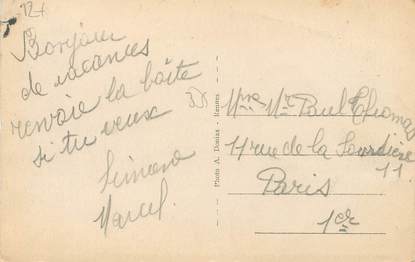 Bonjour
de vacances
renvoie la boîte
si tu veux
Simone
Marcel
Photo A. Donias - Rennes
Mme Mr Paul Thomas
11 rue de la Sourdière
11
Paris
1er